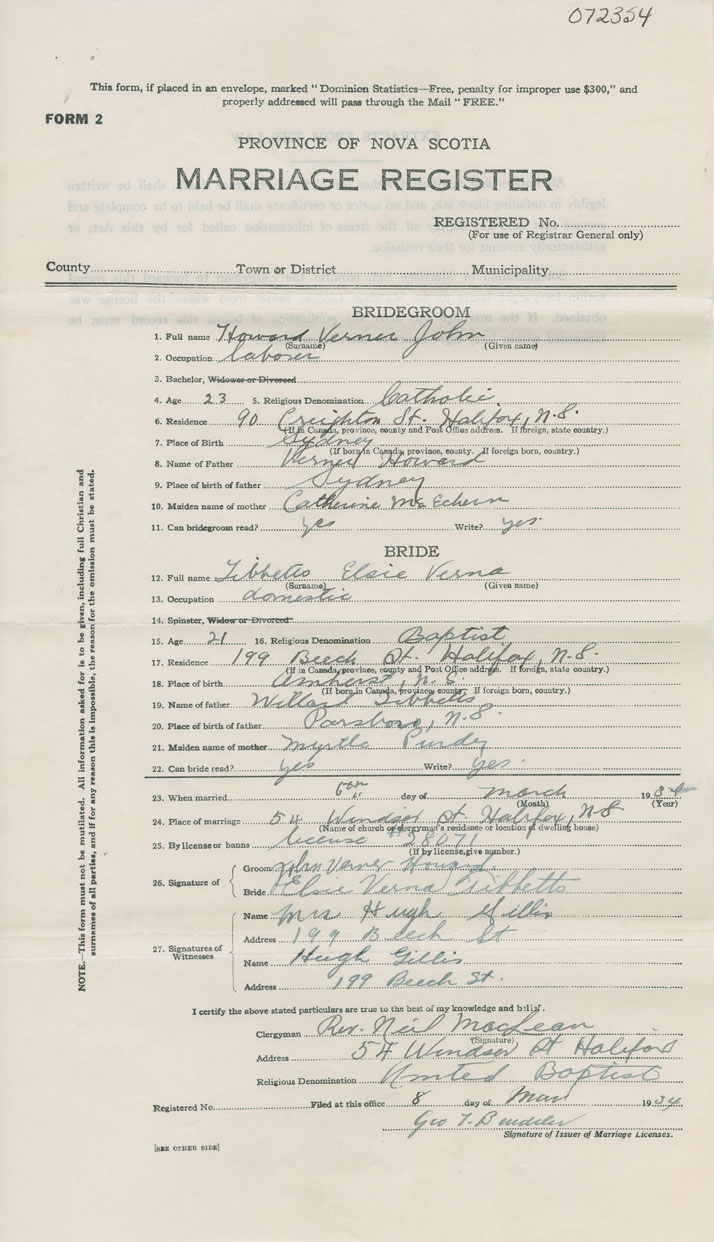 072354
This form, if placed in an envelope, marked "Dominion Statistics—Free, penalty for improper use $300," and
properly addressed will pass through the Mail "FREE."
FORM 2
PROVINCE OF NOVA SCOTIA
MARRIAGE REGISTER
REGISTERED No.
(For use of Registrar General only)
County Town or District Municipality
BRIDEGROOM
1. Full name Howard Verner John
(Surname) (Given name)
2. Occupation laborer
3. Bachelor, Widower or Divorced
4. Age 23 5. Religious Denomination Catholic
6. Residence 90 Creighton St. Halifax, N.S.
(If in Canada, province, county and Post Office address. If foreign, state country.)
7. Place of Birth Sydney
(If born in Canada, province, county. If foreign born, country.)
8. Name of Father Verner Howard
9. Place of birth of father Sydney
10. Maiden name of mother Catherine McEchern
11. Can bridegroom read? yes Write? yes
BRIDE
12. Full name Tibbetts Elsie Verna
(Surname) (Given name)
13. Occupation domestic
14. Spinster, Widow or Divorced
15. Age 21 16. Religious Denomination Baptist
17. Residence 199 Beech St. Halifax, N.S.
(If in Canada, province, county and Post Office address. If foreign, state country.)
18. Place of birth Amherst, N.S.
(If born in Canada, province, county. If foreign born, country.)
19. Name of father Willard Tibbetts
20. Place of birth of father Parsboro, N.S.
21. Maiden name of mother Myrtle Purdy
22. Can bride read? yes Write? yes
23. When married day of March 1934
(Month) (Year)
24. Place of marriage 54 Windsor St Halifax, N.S
(Name of church or clergyman's residence or location of dwelling house)
25. By license or banns license #28071
(If by license, give number.)
26. Signature of
Groom John Verner Howard
Bride Elsie Verna Tibbetts
27. Signatures of Witnesses
Name Mrs Hugh Gillis
Address 199 Beech St
Name Hugh Gillis
Address 199 Beech St.
I certify the above stated particulars are true to the best of my knowledge and belief.
Clergyman Rev. Neil MacLean
(Signature)
Address 54 Windsor St Halifax
Religious Denomination United Baptist
Registered No. Filed at this office 8 day of Mar 1934
Geo T.
Signature of Issuer of Marriage Licenses.
[SEE OTHER SIDE]
NOTE.—This form must not be mutilated. All information asked for is to be given, including full Christian and
surnames of all parties, and if for any reason this is impossible, the reason for the omission must be stated.